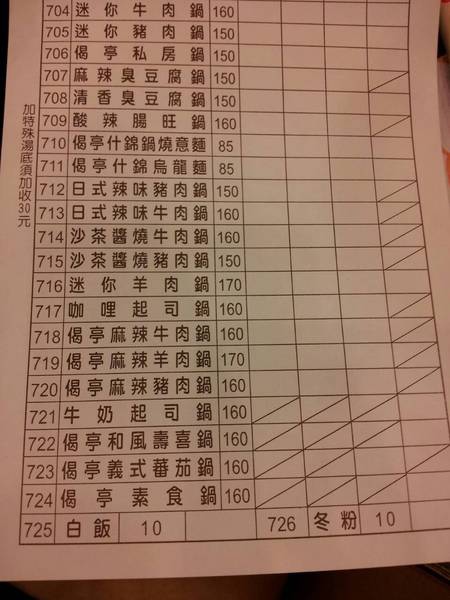 704 迷你牛肉鍋 160
705 迷你豬肉鍋 150
706 偈亭私房鍋 150
707 麻辣臭豆腐鍋 150
708 清香臭豆腐鍋 150
709 酸辣腸旺鍋 160
710 偈亭什錦鍋燒意麵 85
711 偈亭什錦烏龍麵 85
712 日式辣味豬肉鍋 150
713 日式辣味牛肉鍋 160
714 沙茶醬燒牛肉鍋 160
715 沙茶醬燒豬肉鍋 150
716 迷你羊肉鍋 170
717 咖哩起司鍋 160
718 偈亭麻辣牛肉鍋 160
719 偈亭麻辣羊肉鍋 170
720 偈亭麻辣豬肉鍋 160
721 牛奶起司鍋 160
722 偈亭和風壽喜鍋 160
723 偈亭義式蕃茄鍋 160
724 偈亭素食鍋 160
725 白飯 10 726 冬粉 10
加特殊湯底須加收30元